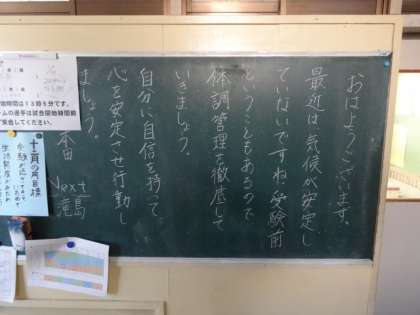 おはようございます。
最近は気候が安定し
ていないですね。受験前
ということもあるので
体調管理を徹底して
いきましょう。
自分に自信を持って
心を安定させ行動し
ましょう。
本田
Next
滝島
始時間は13時5分です。
ームの選手は試合開始時間前
集合してください。
十二月の月目標